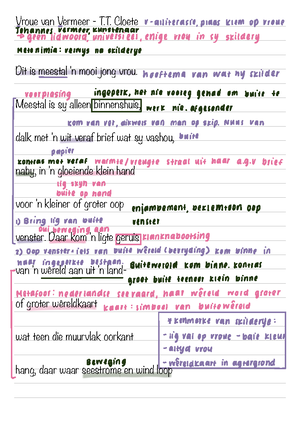 Vroue van Vermeer - T.T. Cloete v-alliterasie, plaas klem op vroue
Johannes Vermeer, kunstenaar
→ geen lidwoord, universieel, enige vrou in sy skildery
Metonimia: verwys na skilderye
Dit is meestal 'n mooi jong vrou. hooftema van wat hy skilder
voorplasing ingeperk, het nie nodig gehad om buite te
Meestal is sy alleen binnenshuis, werk nie. afgesonder
kom van ver, dikwels van man op skip. Nuus van
dalk met 'n wit veraf brief wat sy vashou, buite
papier
kontras met veraf warmte/vreugte straal uit haar a.g.v brief
naby, in 'n gloeiende klein hand
lig skyn van
buite op hand
voor 'n kleiner of groter oop enjambement, beklemtoon oop
venster
1) Bring lig van buite
oui beweging aan
venster. Daar kom 'n ligte geruis klanknabootsing
2) Oop venster-iets van buite wêreld (beryding) kom binne in
haar ingeperkte bestaan.
van 'n wêreld aan uit 'n land- Buitewêreld kom binne. kontras
groot buite teenoor klein binne
Metafoor: nederlandse seevaard, haar wêreld word groter
of groter wêreldkaart kaart: simbool van buitewêreld
4 kenmerke van skilderye:
- lig val op vroue
wat teen die muurvlak oorkant
- altyd vrou
Beweging
- wêreldkaart in agtergrond
hang, daar waar seestrome en wind loop